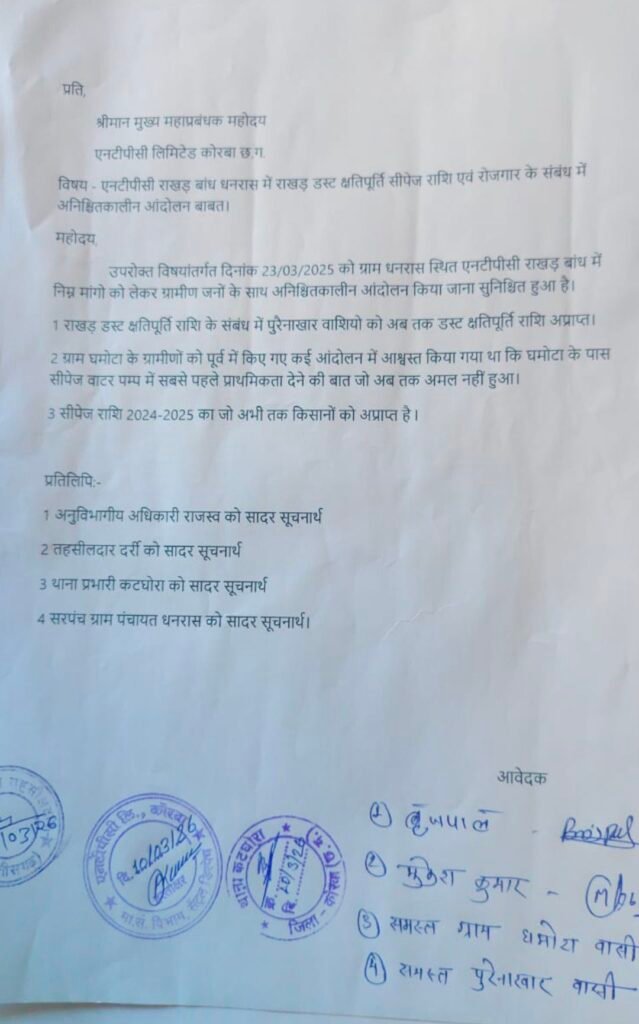 प्रति,
श्रीमान मुख्य महाप्रबंधक महोदय
एनटीपीसी लिमिटेड कोरबा छ.ग.
विषय - एनटीपीसी राखड़ बांध धनरास में राखड़ डस्ट क्षतिपूर्ति सीपेज राशि एवं रोजगार के संबंध में
अनिश्चितकालीन आंदोलन बाबत।
महोदय,
उपरोक्त विषयांतर्गत दिनांक 23/03/2025 को ग्राम धनरास स्थित एनटीपीसी राखड़ बांध में
निम्न मांगो को लेकर ग्रामीण जनों के साथ अनिश्चितकालीन आंदोलन किया जाना सुनिश्चित हुआ है।
1 राखड़ डस्ट क्षतिपूर्ति राशि के संबंध में पुरैनाखार वाशियो को अब तक डस्ट क्षतिपूर्ति राशि अप्राप्त।
2 ग्राम घमोटा के ग्रामीणों को पूर्व में किए गए कई आंदोलन में आश्वस्त किया गया था कि घमोटा के पास
सीपेज वाटर पम्प में सबसे पहले प्राथमिकता देने की बात जो अब तक अमल नहीं हुआ।
3 सीपेज राशि 2024-2025 का जो अभी तक किसानों को अप्राप्त है।
प्रतिलिपि:-
1 अनुविभागीय अधिकारी राजस्व को सादर सूचनार्थ
2 तहसीलदार दर्री को सादर सूचनार्थ
3 थाना प्रभारी कटघोरा को सादर सूचनार्थ
4 सरपंच ग्राम पंचायत धनरास को सादर सूचनार्थ।
आवेदक
① बृजपाल -
② मुकेश कुमार -
③ समस्त ग्राम घमोटा वासी
④ समस्त पुरेनाखार वासी
एनटीपीसी लि., कोरबा
दि. 10/03/26
मा.सं. विभाग,
थाना कटघोरा
दि. 10/3/26
जिला - कोरबा (छ.ग.)